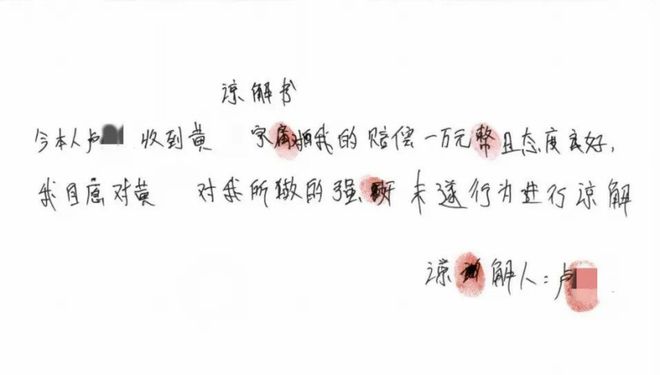 谅解书
今本人卢 收到黄 家属 我的赔偿一万元 且态度良好,
我自愿对黄 对我所做的强奸未遂行为进行谅解
谅 解人:卢